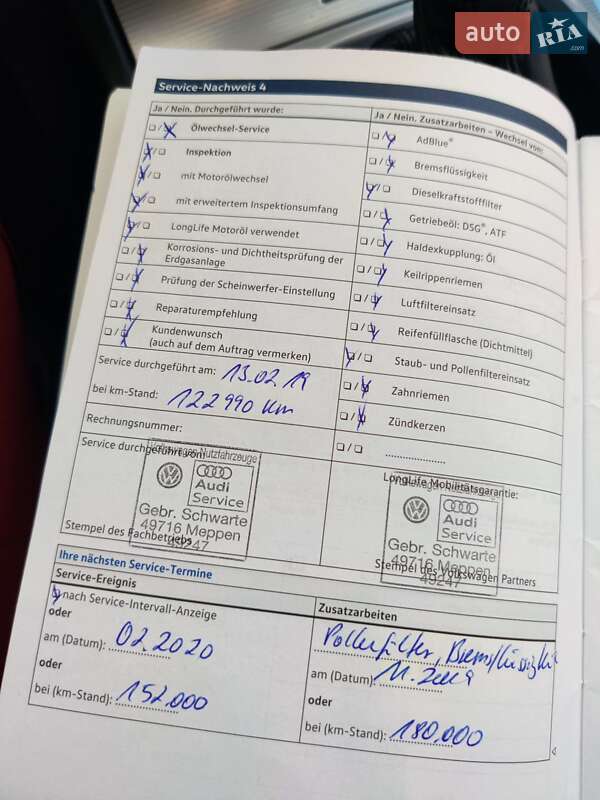 auto RIA .com
Service-Nachweis 4
Ja / Nein. Durchgeführt wurde:
Ölwechsel-Service
Inspektion
mit Motorölwechsel
mit erweitertem Inspektionsumfang
LongLife Motoröl verwendet
Korrosions- und Dichtheitsprüfung der
Erdgasanlage
Prüfung der Scheinwerfer-Einstellung
Reparaturempfehlung
Kundenwunsch
(auch auf dem Auftrag vermerken)
Service durchgeführt am: 13.02.19
bei km-Stand: 122 990 km
Rechnungsnummer:
Service durchgeführt von:
Volkswagen Nutzfahrzeuge
Audi
Service
Gebr. Schwarte
49716 Meppen
49247
Stempel des Fachbetriebs
Ja / Nein. Zusatzarbeiten – Wechsel von:
AdBlue®
Bremsflüssigkeit
Dieselkraftstofffilter
Getriebeöl: DSG®, ATF
Haldexkupplung: Öl
Keilrippenriemen
Luftfiltereinsatz
Reifenfüllflasche (Dichtmittel)
Staub- und Pollenfiltereinsatz
Zahnriemen
Zündkerzen
LongLife Mobilitätsgarantie:
Audi
Service
Gebr. Schwarte
49716 Meppen
49247
Stempel des Volkswagen Partners
Ihre nächsten Service-Termine
Service-Ereignis
nach Service-Intervall-Anzeige
oder
am (Datum): 02.2020
oder
bei (km-Stand): 152.000
Zusatzarbeiten
Pollenfilter,
am (Datum):
oder
bei (km-Stand): 180.000